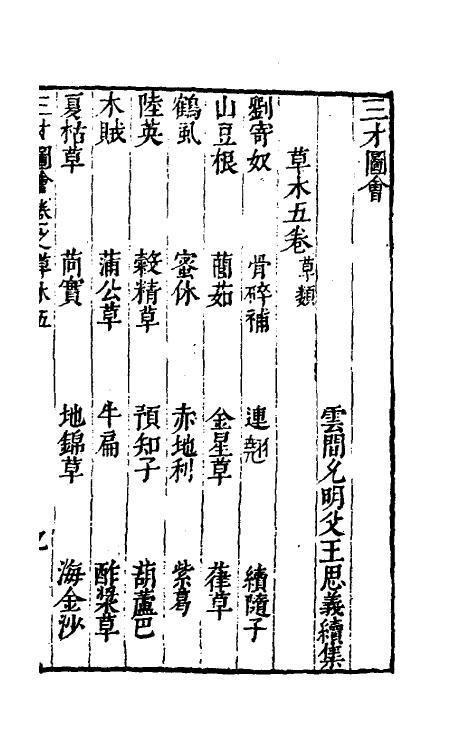 三才圖會
雲間允明父王思義續集
草木五卷 草類
劉寄奴 骨碎補 連翹 續隨子
山豆根 䕡茹 金星草 葎草
鶴虱 蚤休 赤地利 紫葛
陸英 穀精草 預知子 葫蘆巴
木賊 蒲公草 牛扁 酢漿草
夏枯草 茼實 地錦草 海金沙
三才圖會 卷之草木五